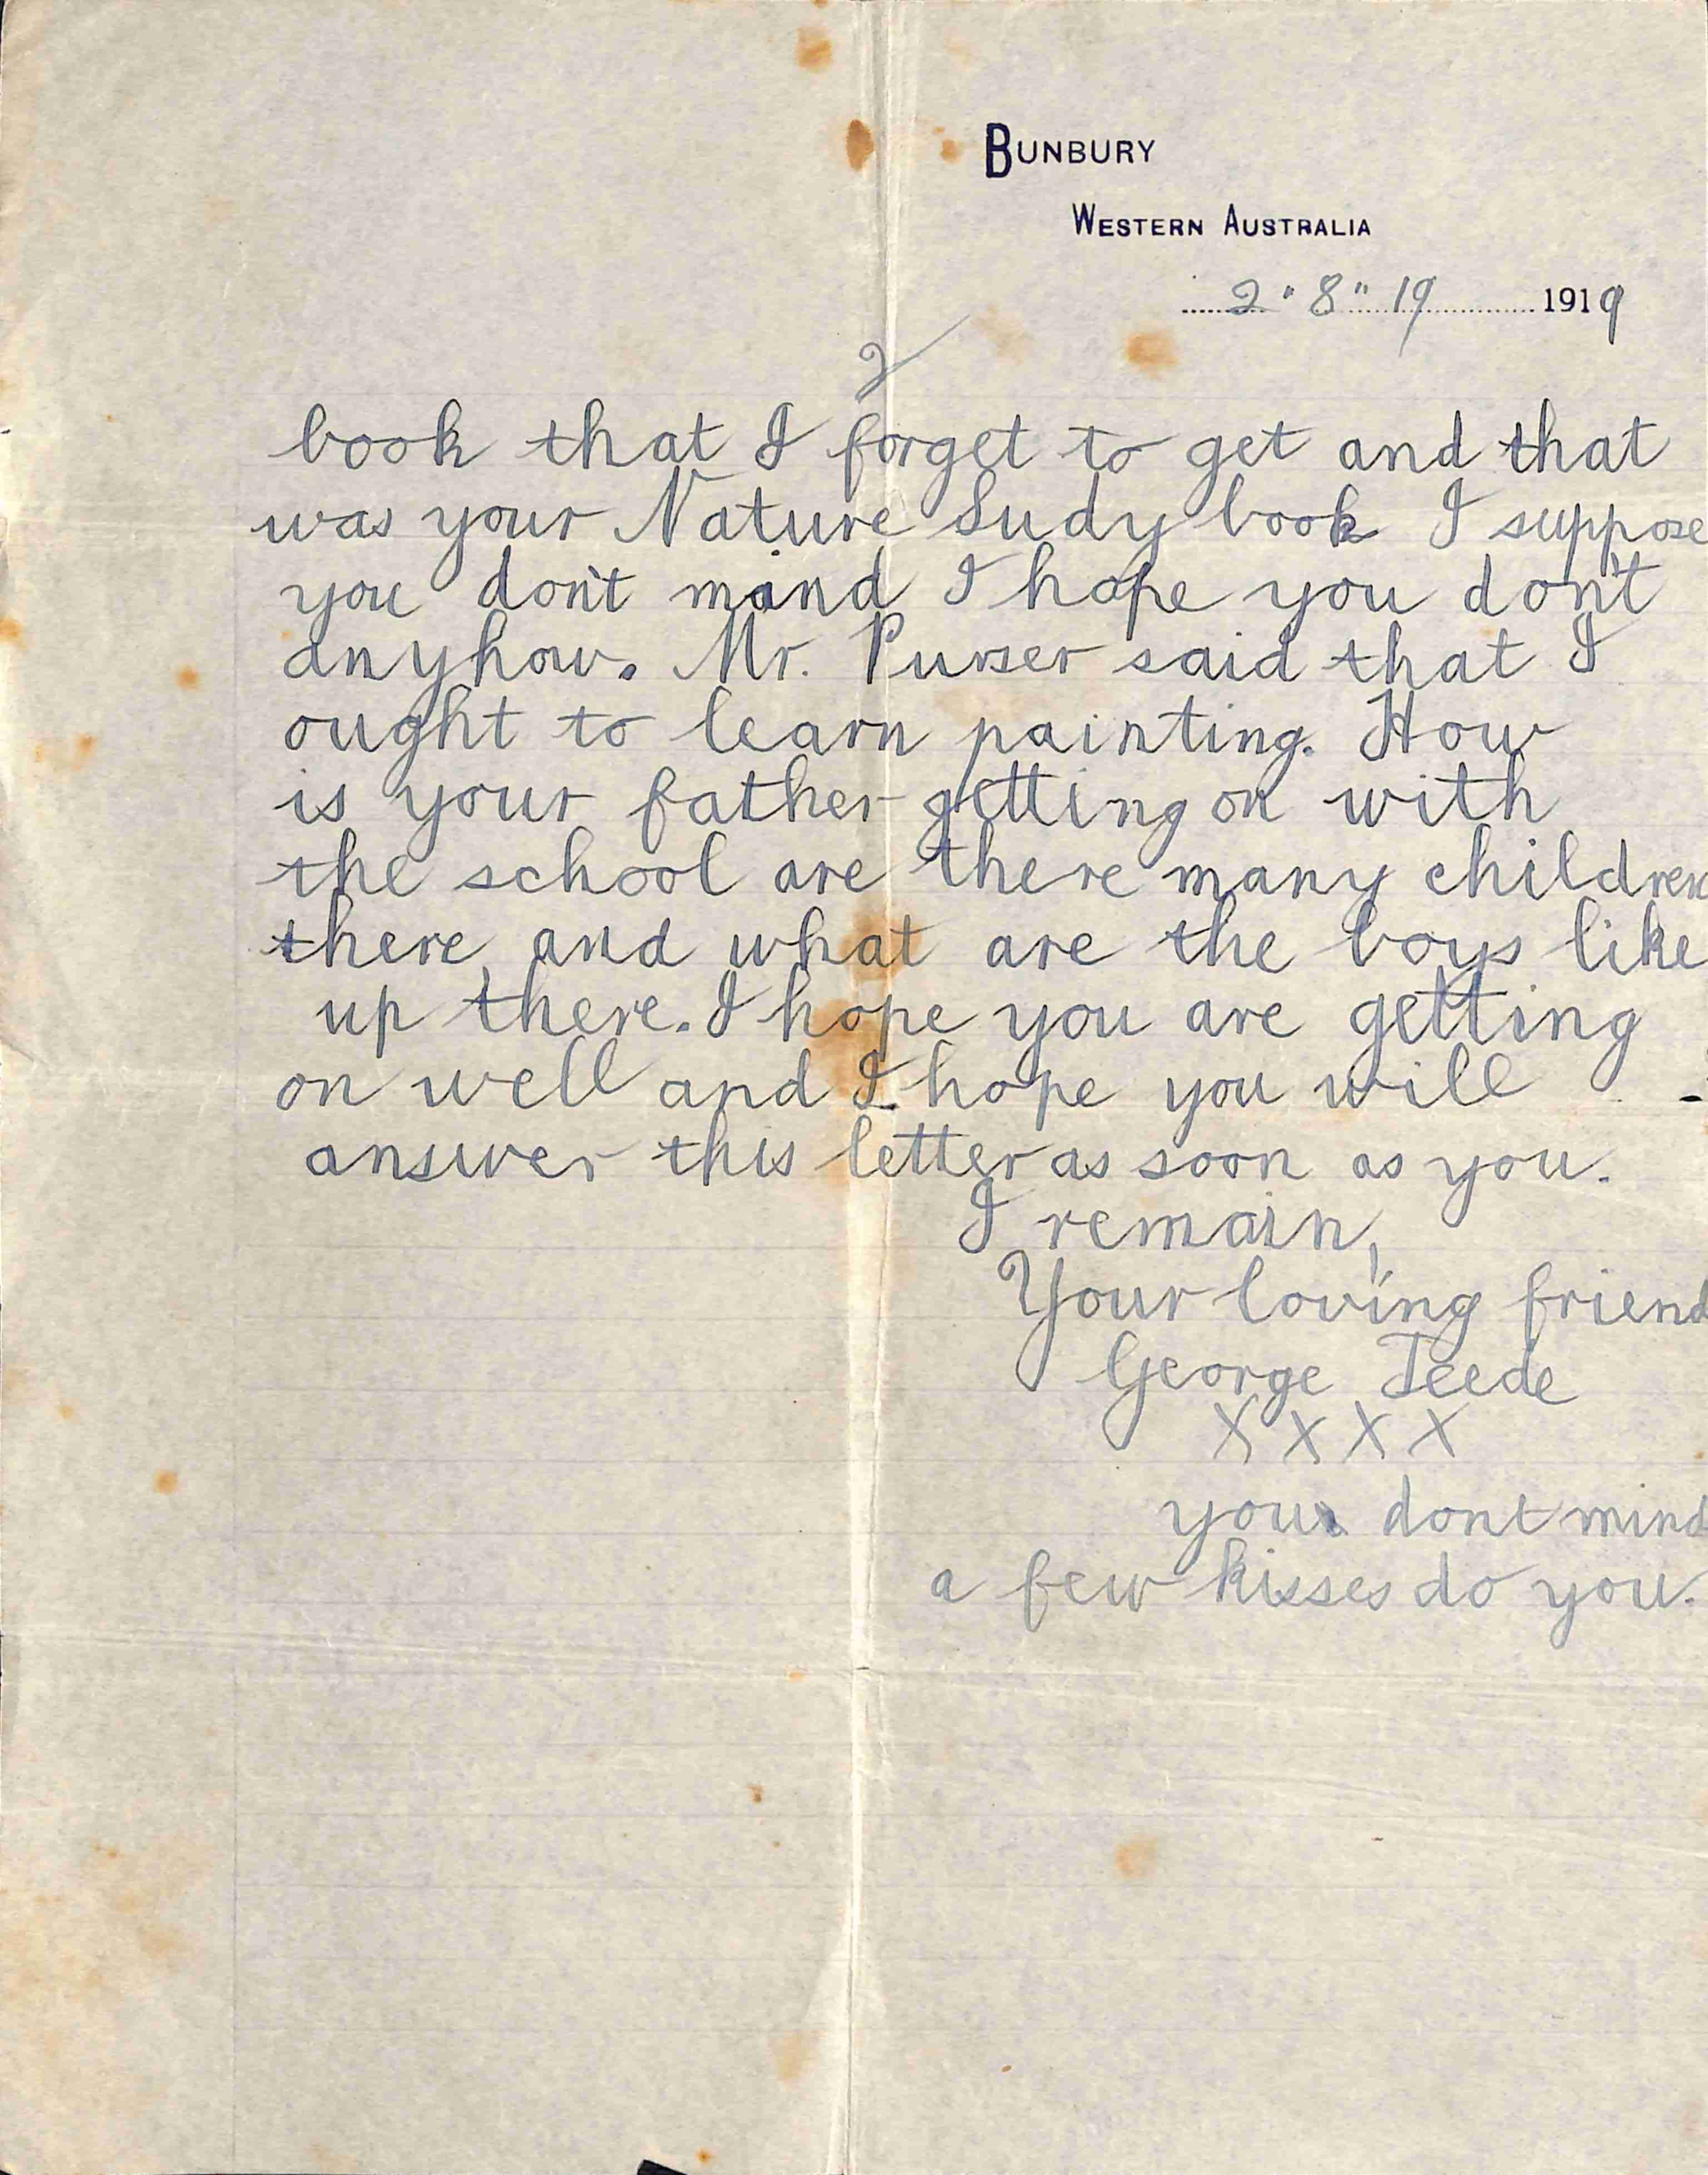 BUNBURY
WESTERN AUSTRALIA
2 " 8 " 19 1919
2/
book that I forget to get and that
was your Nature Sudy book I suppose
you don't mind I hope you don't
anyhow. Mr. Purser said that I
ought to learn painting. How
is your father getting on with
the school are there many children
there, and what are the boys like
up there. I hope you are getting
on well and I hope you will
answer this letter as soon as you.
I remain,
Your loving friend
George Teede
X X X X
you dont mind
a few kisses do you.